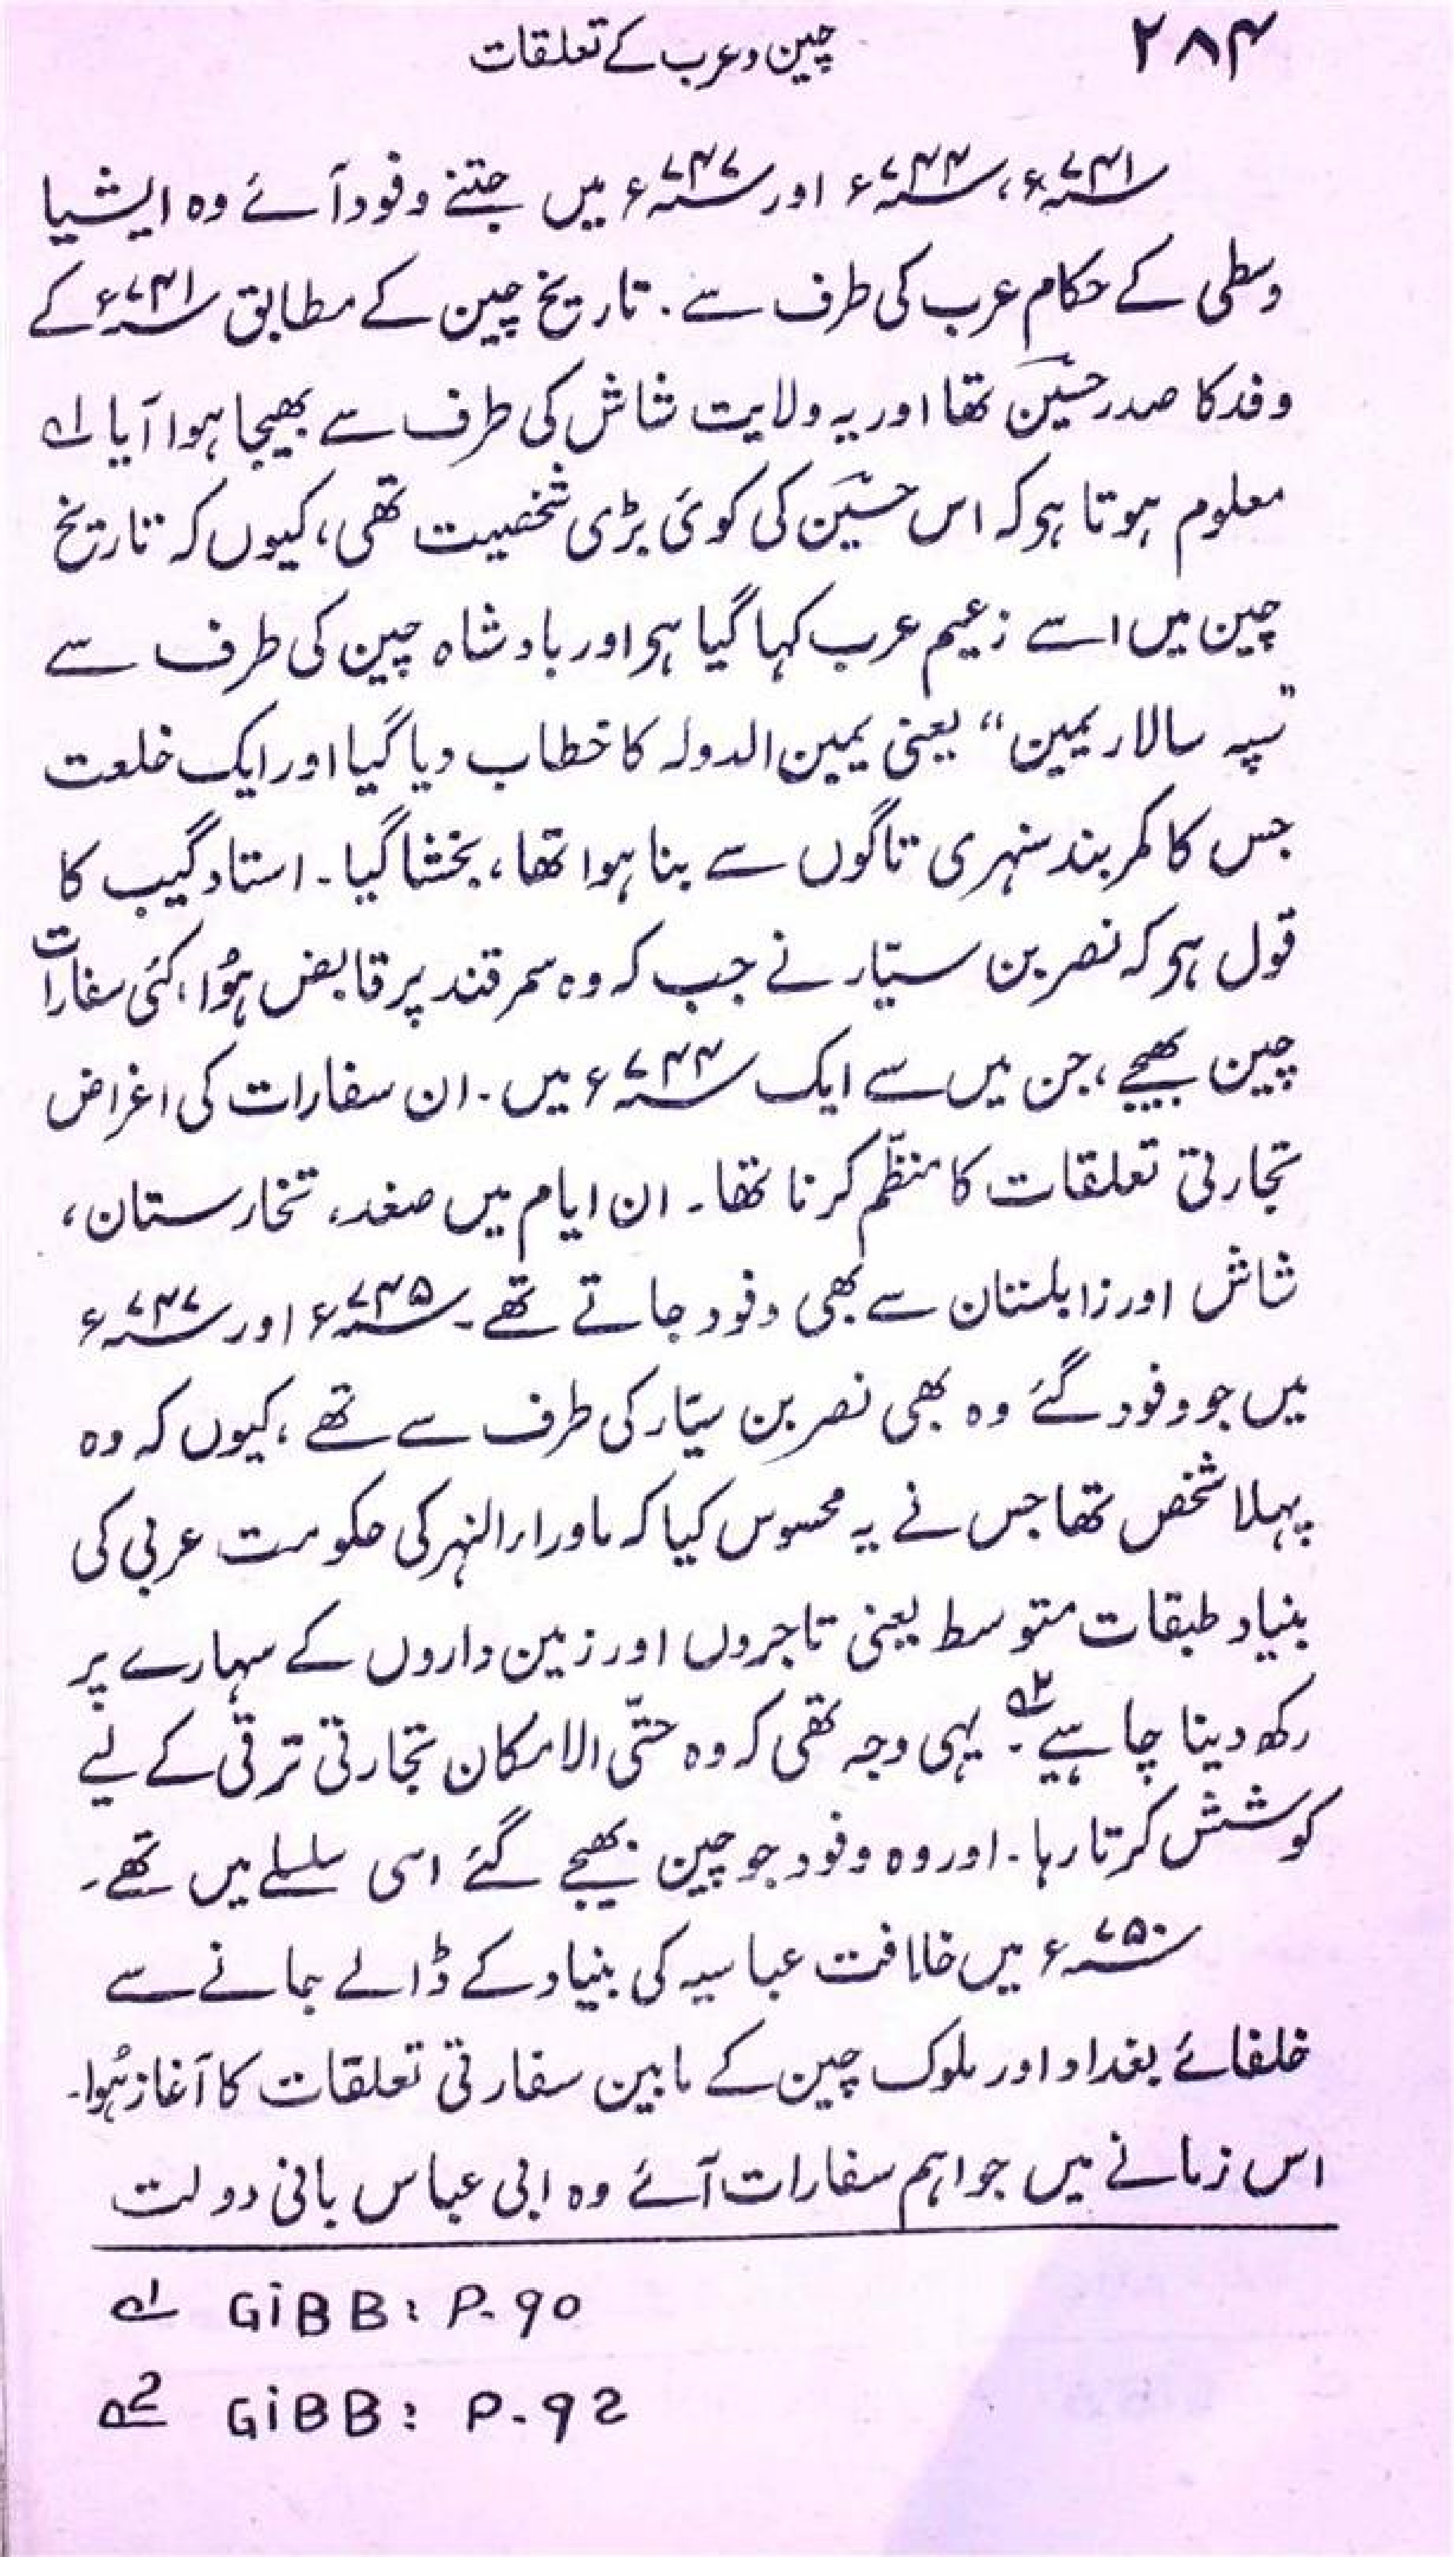 ۲۸۴
چین و عرب کے تعلقات
۷۴۱ء، ۷۴۴ء اور ۷۴۷ء میں جتنے وفود آئے وہ ایشیا
وسطی کے حکام عرب کی طرف سے۔ تاریخ چین کے مطابق ۷۴۱ء کے
وفد کا صدر حسین تھا اور یہ ولایت شاش کی طرف سے بھیجا ہوا آیا۱؎
معلوم ہوتا ہو کہ اس حسین کی کوئی بڑی شخصیت تھی، کیوں کہ تاریخ
چین میں اسے زعیم عرب کہا گیا ہو اور بادشاہ چین کی طرف سے
"سپہ سالار یمین" یعنی یمین الدولہ کا خطاب دیا گیا اور ایک خلعت
جس کا کمر بند سنہری تاگوں سے بنا ہوا تھا، بخشا گیا۔ استاد گیب کا
قول ہو کہ نصر بن سیّار نے جب کہ وہ سمرقند پر قابض ہُوا، کئی سفارات
چین بھیجے، جن میں سے ایک ۷۴۴ء میں۔ ان سفارات کی اغراض
تجارتی تعلقات کا منظّم کرنا تھا۔ ان ایام میں صغد، تخارستان،
شاش اور زابلستان سے بھی وفود جاتے تھے۔ ۷۴۵ء اور ۷۴۷ء
میں جو وفود گئے وہ بھی نصر بن سیّار کی طرف سے تھے، کیوں کہ وہ
پہلا شخص تھا جس نے یہ محسوس کیا کہ ماوراء النہر کی حکومت عربی کی
بنیاد طبقات متوسط یعنی تاجروں اور زمین داروں کے سہارے پر
رکھ دینا چاہیے۲؎۔ یہی وجہ تھی کہ وہ حتّی الامکان تجارتی ترقی کے لیے
کوشش کرتا رہا۔ اور وہ وفود جو چین بھیجے گئے اسی سلسلے میں تھے۔
۷۵۰ء میں خلافت عباسیہ کی بنیاد کے ڈالے جانے سے
خلفائے بغداد اور ملوک چین کے مابین سفارتی تعلقات کا آغاز ہُوا۔
اس زمانے میں جو اہم سفارات آئے وہ ابی عباس بانی دولت
۱؎ GiBB: P-90
2؎ GiBB: P-92